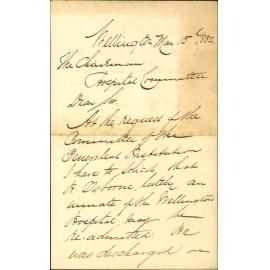 Wellington Mar 15th 1882
The Chairman
Hospital Committee
Dear Sir
At the request of the
Committee of the
Benevolent Institution
I have to solicit that
R Osborne, lately an
inmate of the Wellington
Hospital may be
re-admitted. He
was discharged